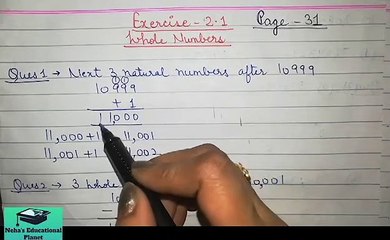 Exercise - 2.1
Page - 31
Whole Numbers
Ques 1 → Next 3 natural numbers after 10999
10999
+ 1
11,000
11,000 + 1 11,001
11,001 + 1 11,002
Ques 2 → 3 whole 0,001
Neha's Educational
Planet